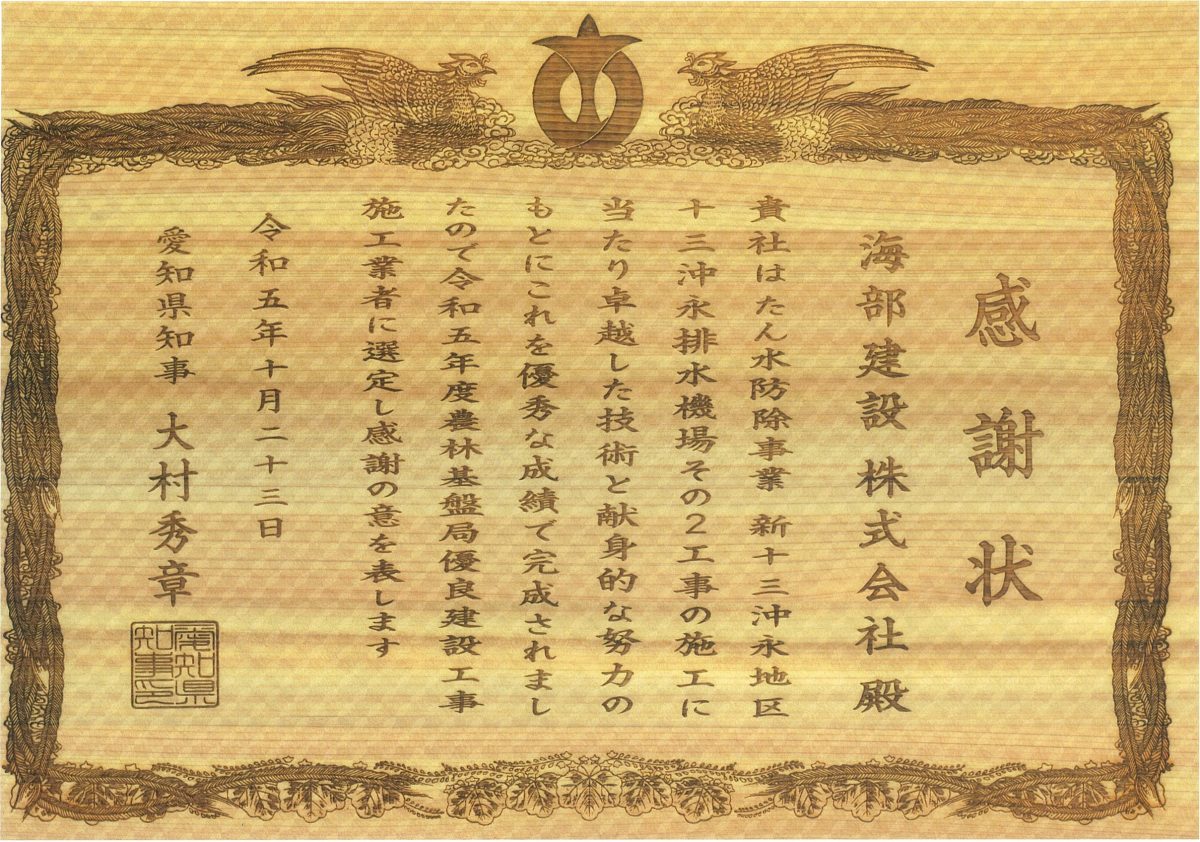 感謝状
海部建設株式会社殿
貴社はたん水防除事業 新十三沖永地区
十三沖永排水機場その2工事の施工に
当たり卓越した技術と献身的な努力の
もとにこれを優秀な成績で完成されまし
たので令和五年度農林基盤局優良建設工事
施工業者に選定し感謝の意を表します
令和五年十月二十三日
愛知県知事 大村秀章
愛知県
知事印